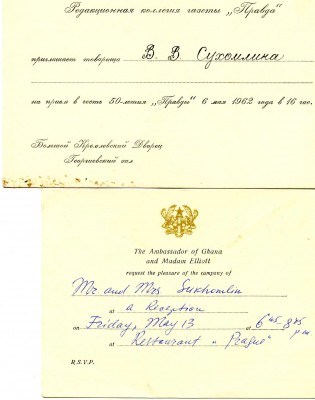 Редакционная коллегия газеты „Правда"
приглашает товарища В. В. Сухомлина
на прием в честь 50-летия „Правды" 6 мая 1962 года в 16 час.
Большой Кремлевский Дворец
Георгиевский зал
The Ambassador of Ghana
and Madam Elliott
request the pleasure of the company of
Mr and Mrs Sukhomlin
at a Reception
on Friday, May 13 at 6.45 8.45
p.m
at Restaurant „Prague"
R.S.V.P.